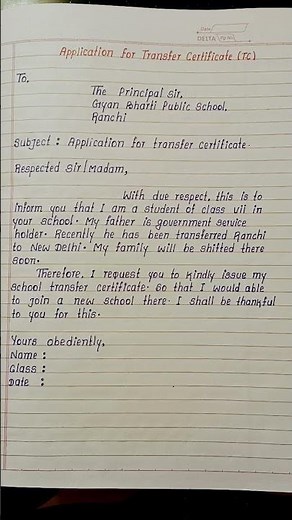 Date
DELTA Pg No.
Application for Transfer Certificate (TC)
To,
The Principal Sir,
Gyan Bharti Public School,
Ranchi
Subject : Application for transfer certificate.
Respected Sir/Madam,
With due respect, this is to
inform you that I am a student of class vii in
your school. My father is government service
holder. Recently he has been transferred Ranchi
to New Delhi. My family will be shifted there
soon.
Therefore, I request you to kindly issue my
school transfer certificate. So that I would able
to join a new school there. I shall be thankful
to you for this.
Yours obediently,
Name :
Class :
Date :